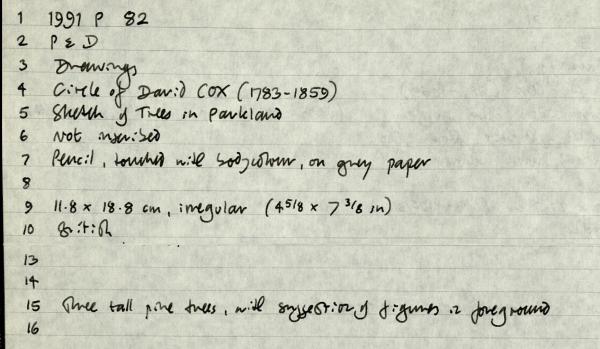 1 1991 P 82
2 P & D
3 Drawings
4 Circle of David COX (1783-1859)
5 Sketch of Trees in Parkland
6 Not inscribed
7 Pencil, touched with bodycolour, on grey paper
8
9 11.8 x 18.8 cm, irregular (4 5/8 x 7 3/8 in)
10 British
13
14
15 Three tall pine trees, with suggestion of figures in foreground
16